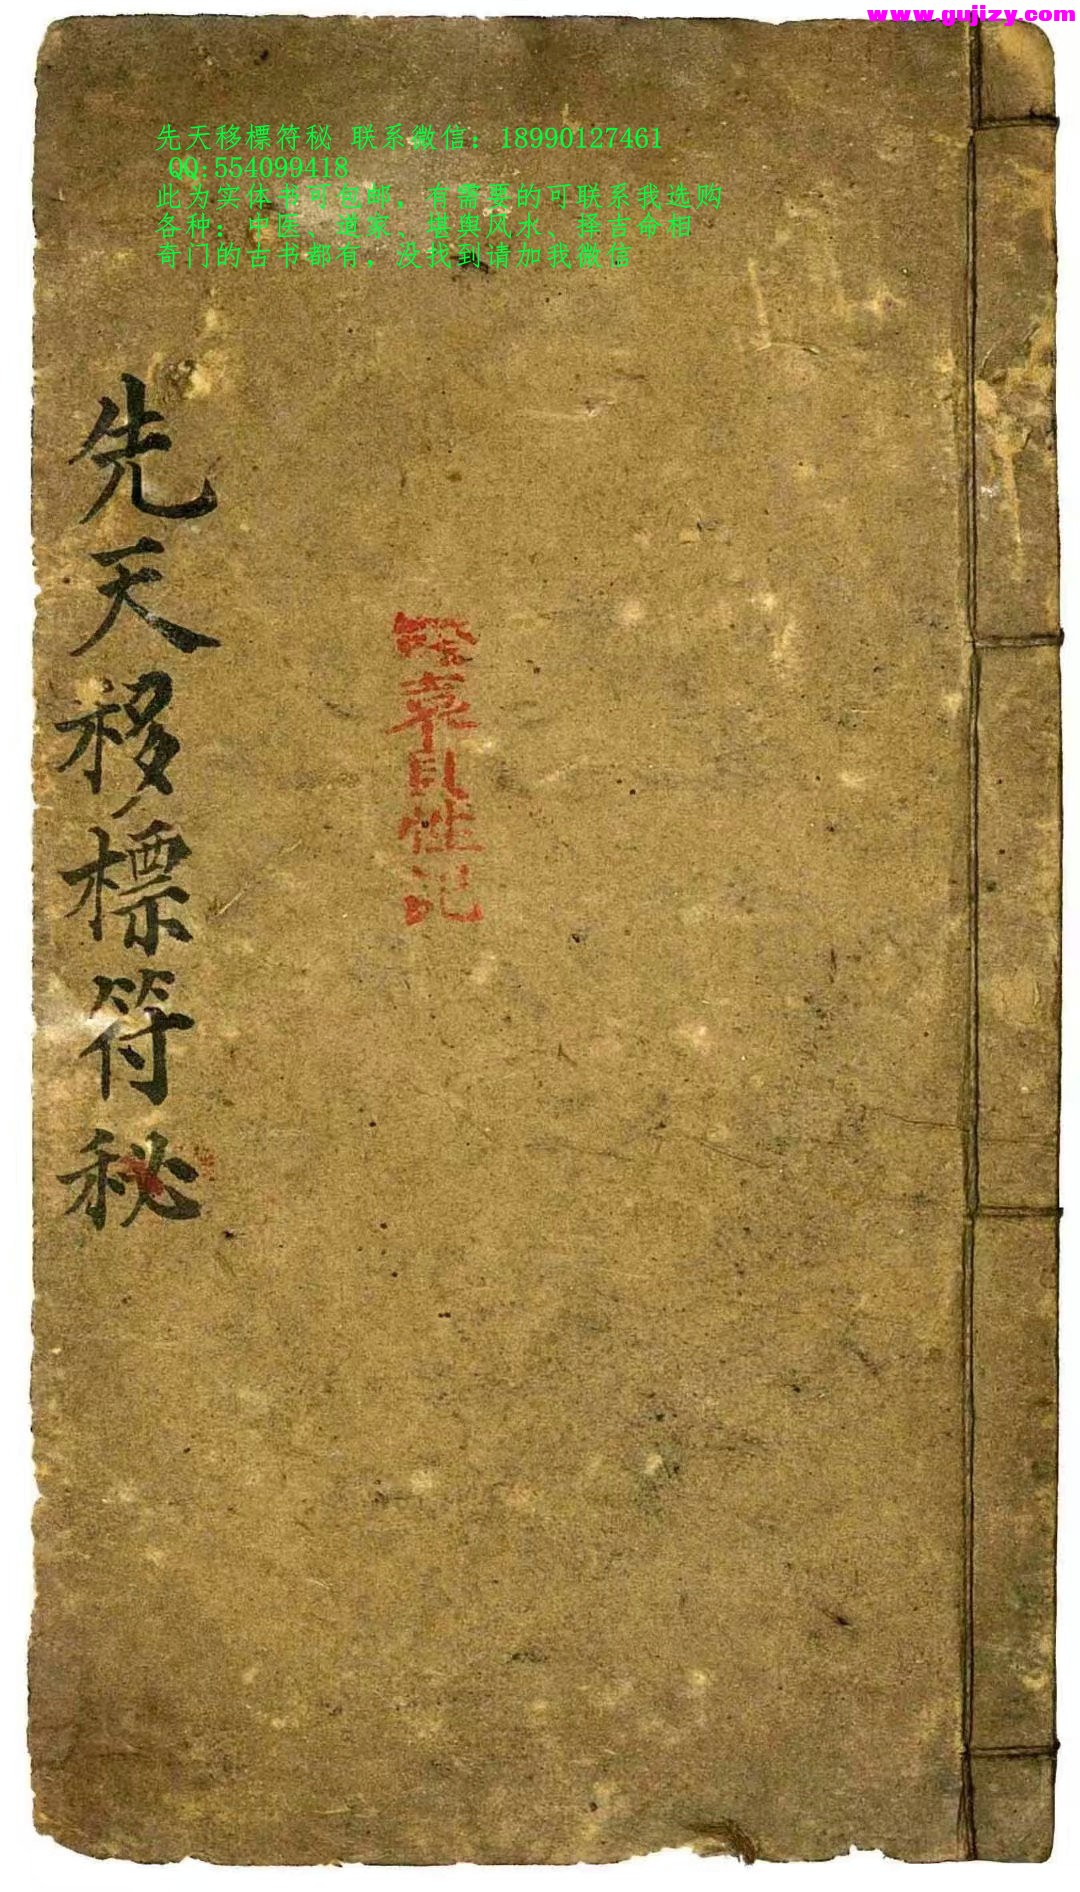 www.gujizy.com
先天移標符秘 联系微信：18990127461
QQ:554099418
此为实体书可包邮，有需要的可联系我选购
各种：中医、道家、堪舆风水、择吉命相
奇门的古书都有，没找到请加我微信
先天移標符秘